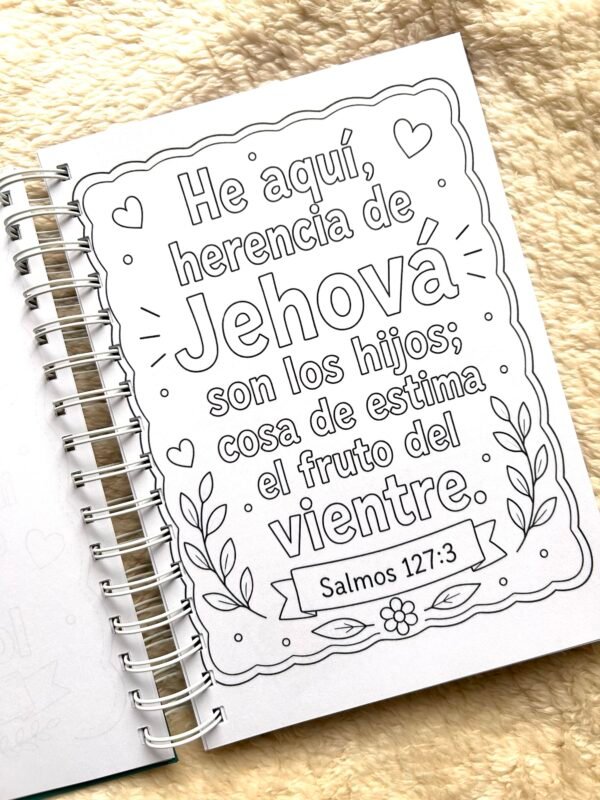 He aquí,
herencia de
Jehová
son los hijos;
cosa de estima
el fruto del
vientre.
Salmos 127:3